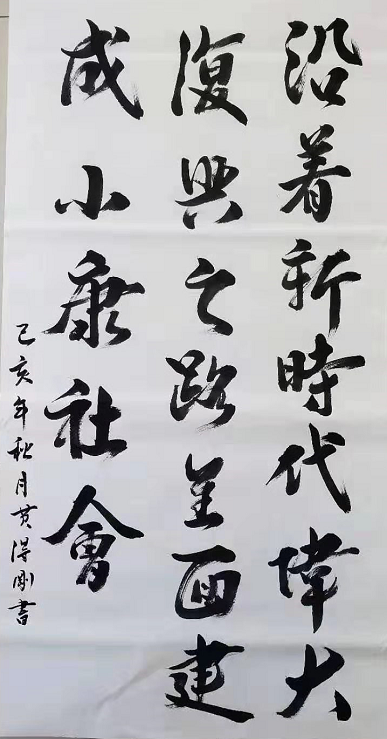 沿着新時代偉大
復興之路全面建
成小康社會
己亥年秋月黄得剛書